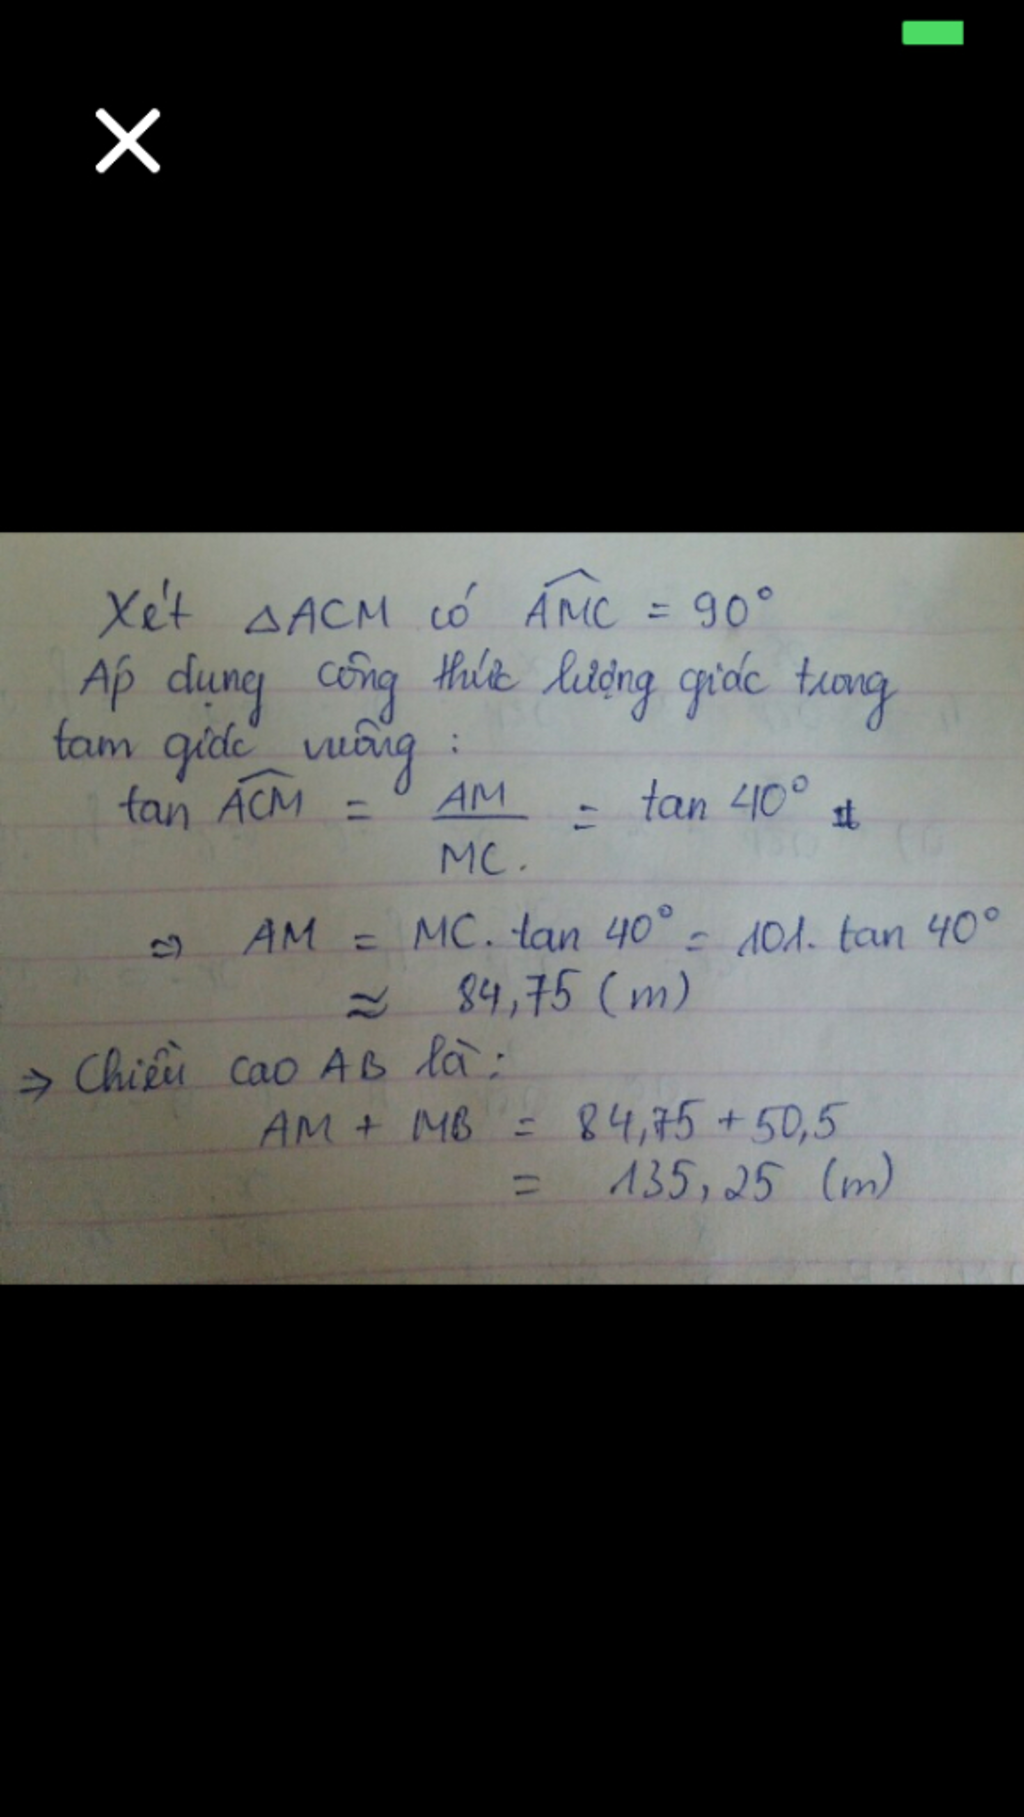 Xét △ACM có \widehat{AMC} = 90°
Áp dụng công thức lượng giác trong
tam giác vuông :
tan \widehat{ACM} = AM / MC. = tan 40°
⇒ AM = MC. tan 40° = 101. tan 40°
≈ 84,75 (m)
⇒ Chiều cao AB là :
AM + MB = 84,75 + 50,5
= 135,25 (m)